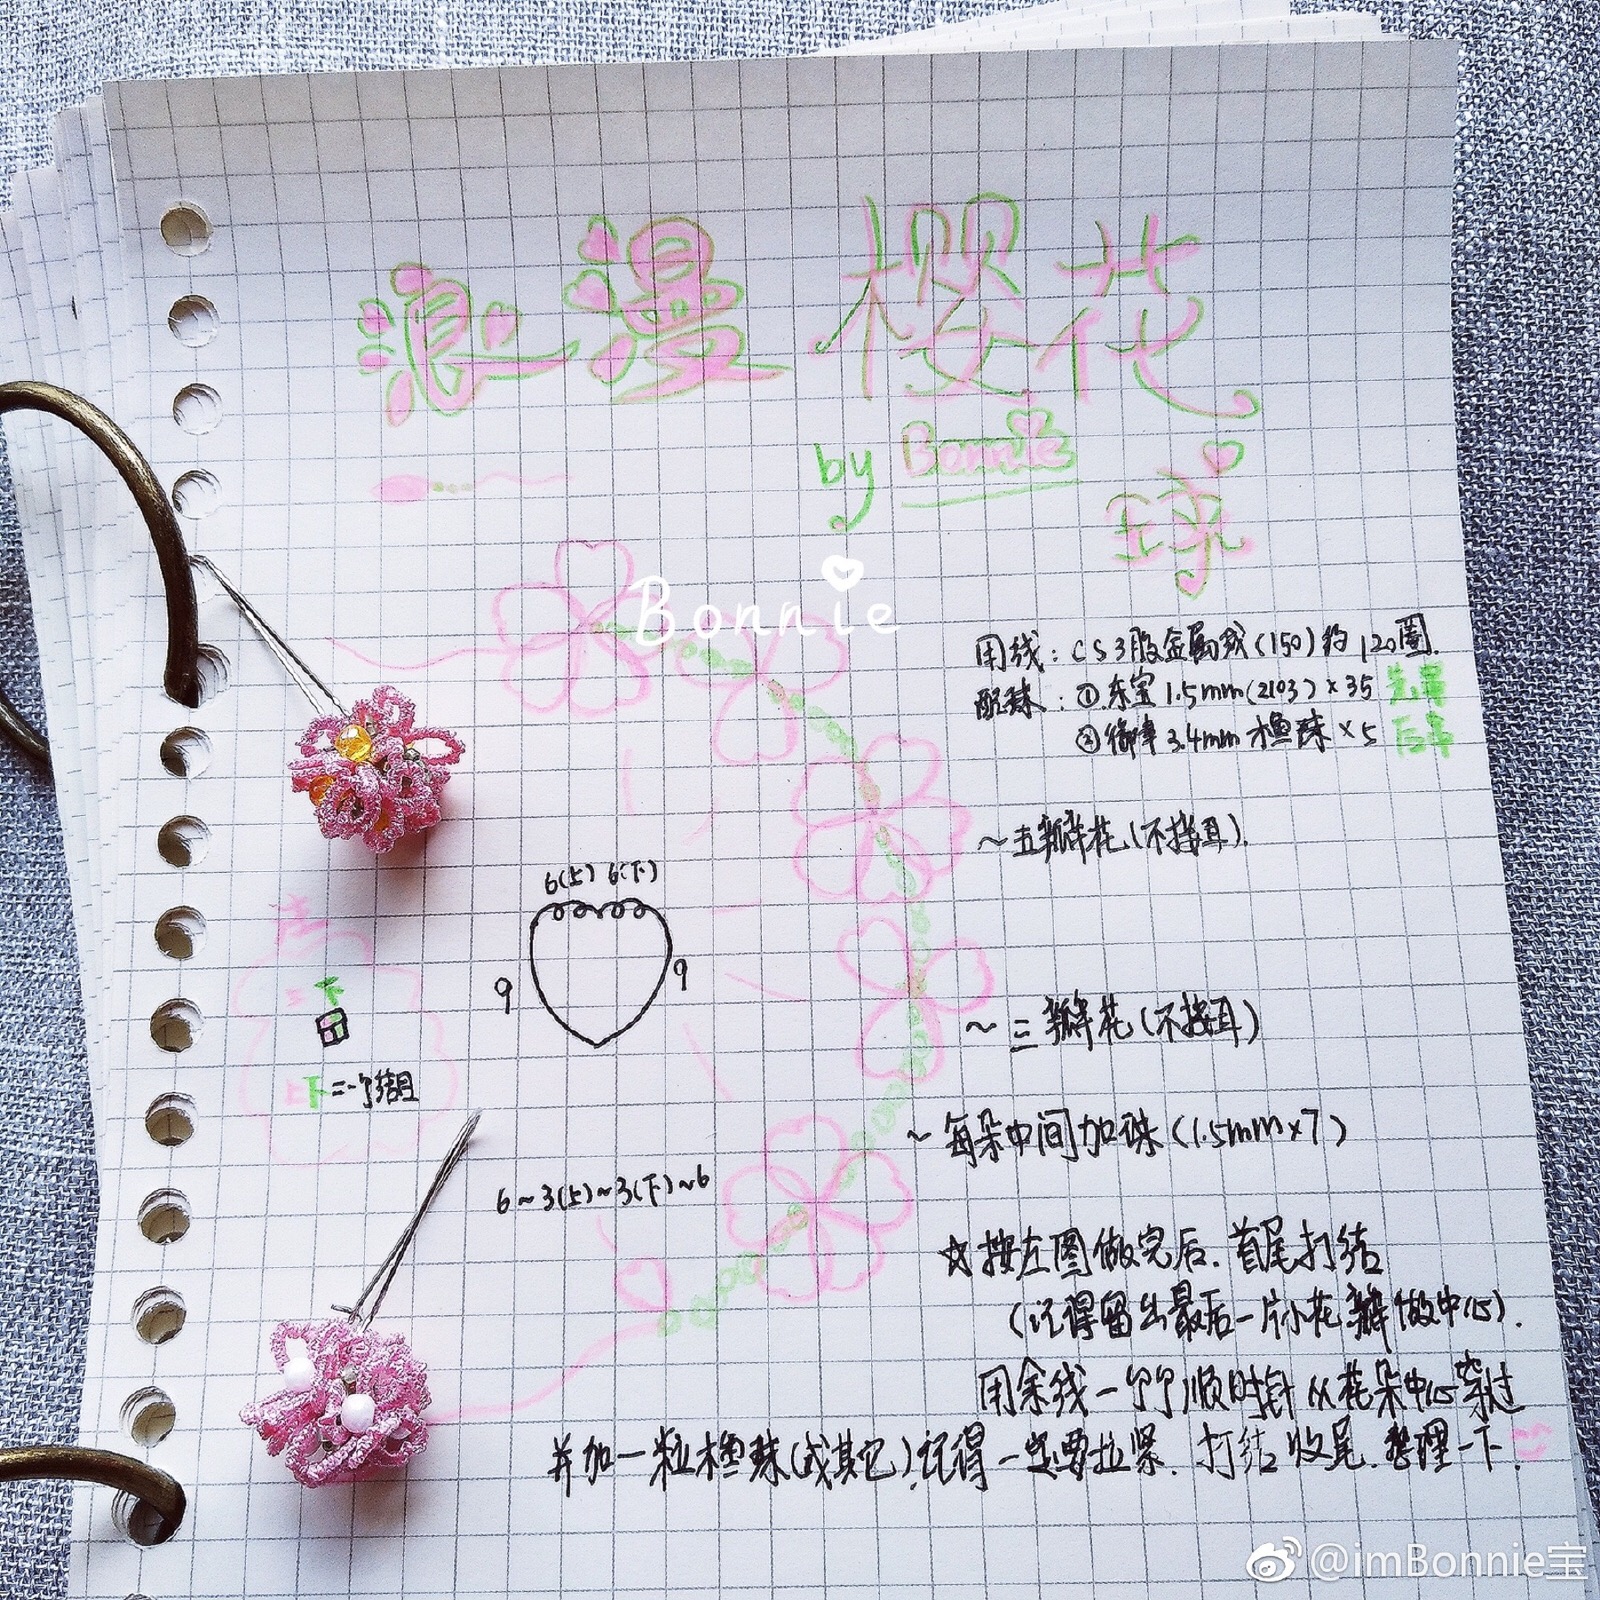 浪漫樱花
by Bonnie
球
Bonnie
用线：CS3股金属线(150)约120圈.
配珠：①.东宝1.5mm(2103)×35 先穿
②御幸3.4mm 水滴珠×5 后穿
~五瓣花(不接耳).
6(上) 6(下)
9
9
下
上下=一个结目
~三瓣花(不接耳)
~每朵中间加珠(1.5mm×7)
6~3(上)~3(下)~6
☆按左图做完后.首尾打结
(记得留出最后一片小花瓣做中心).
用余线一个个顺时针从花朵中心穿过
并加一粒 珠(或其它).记得一定要拉紧.打结收尾.整理一下.
@imBonnie宝